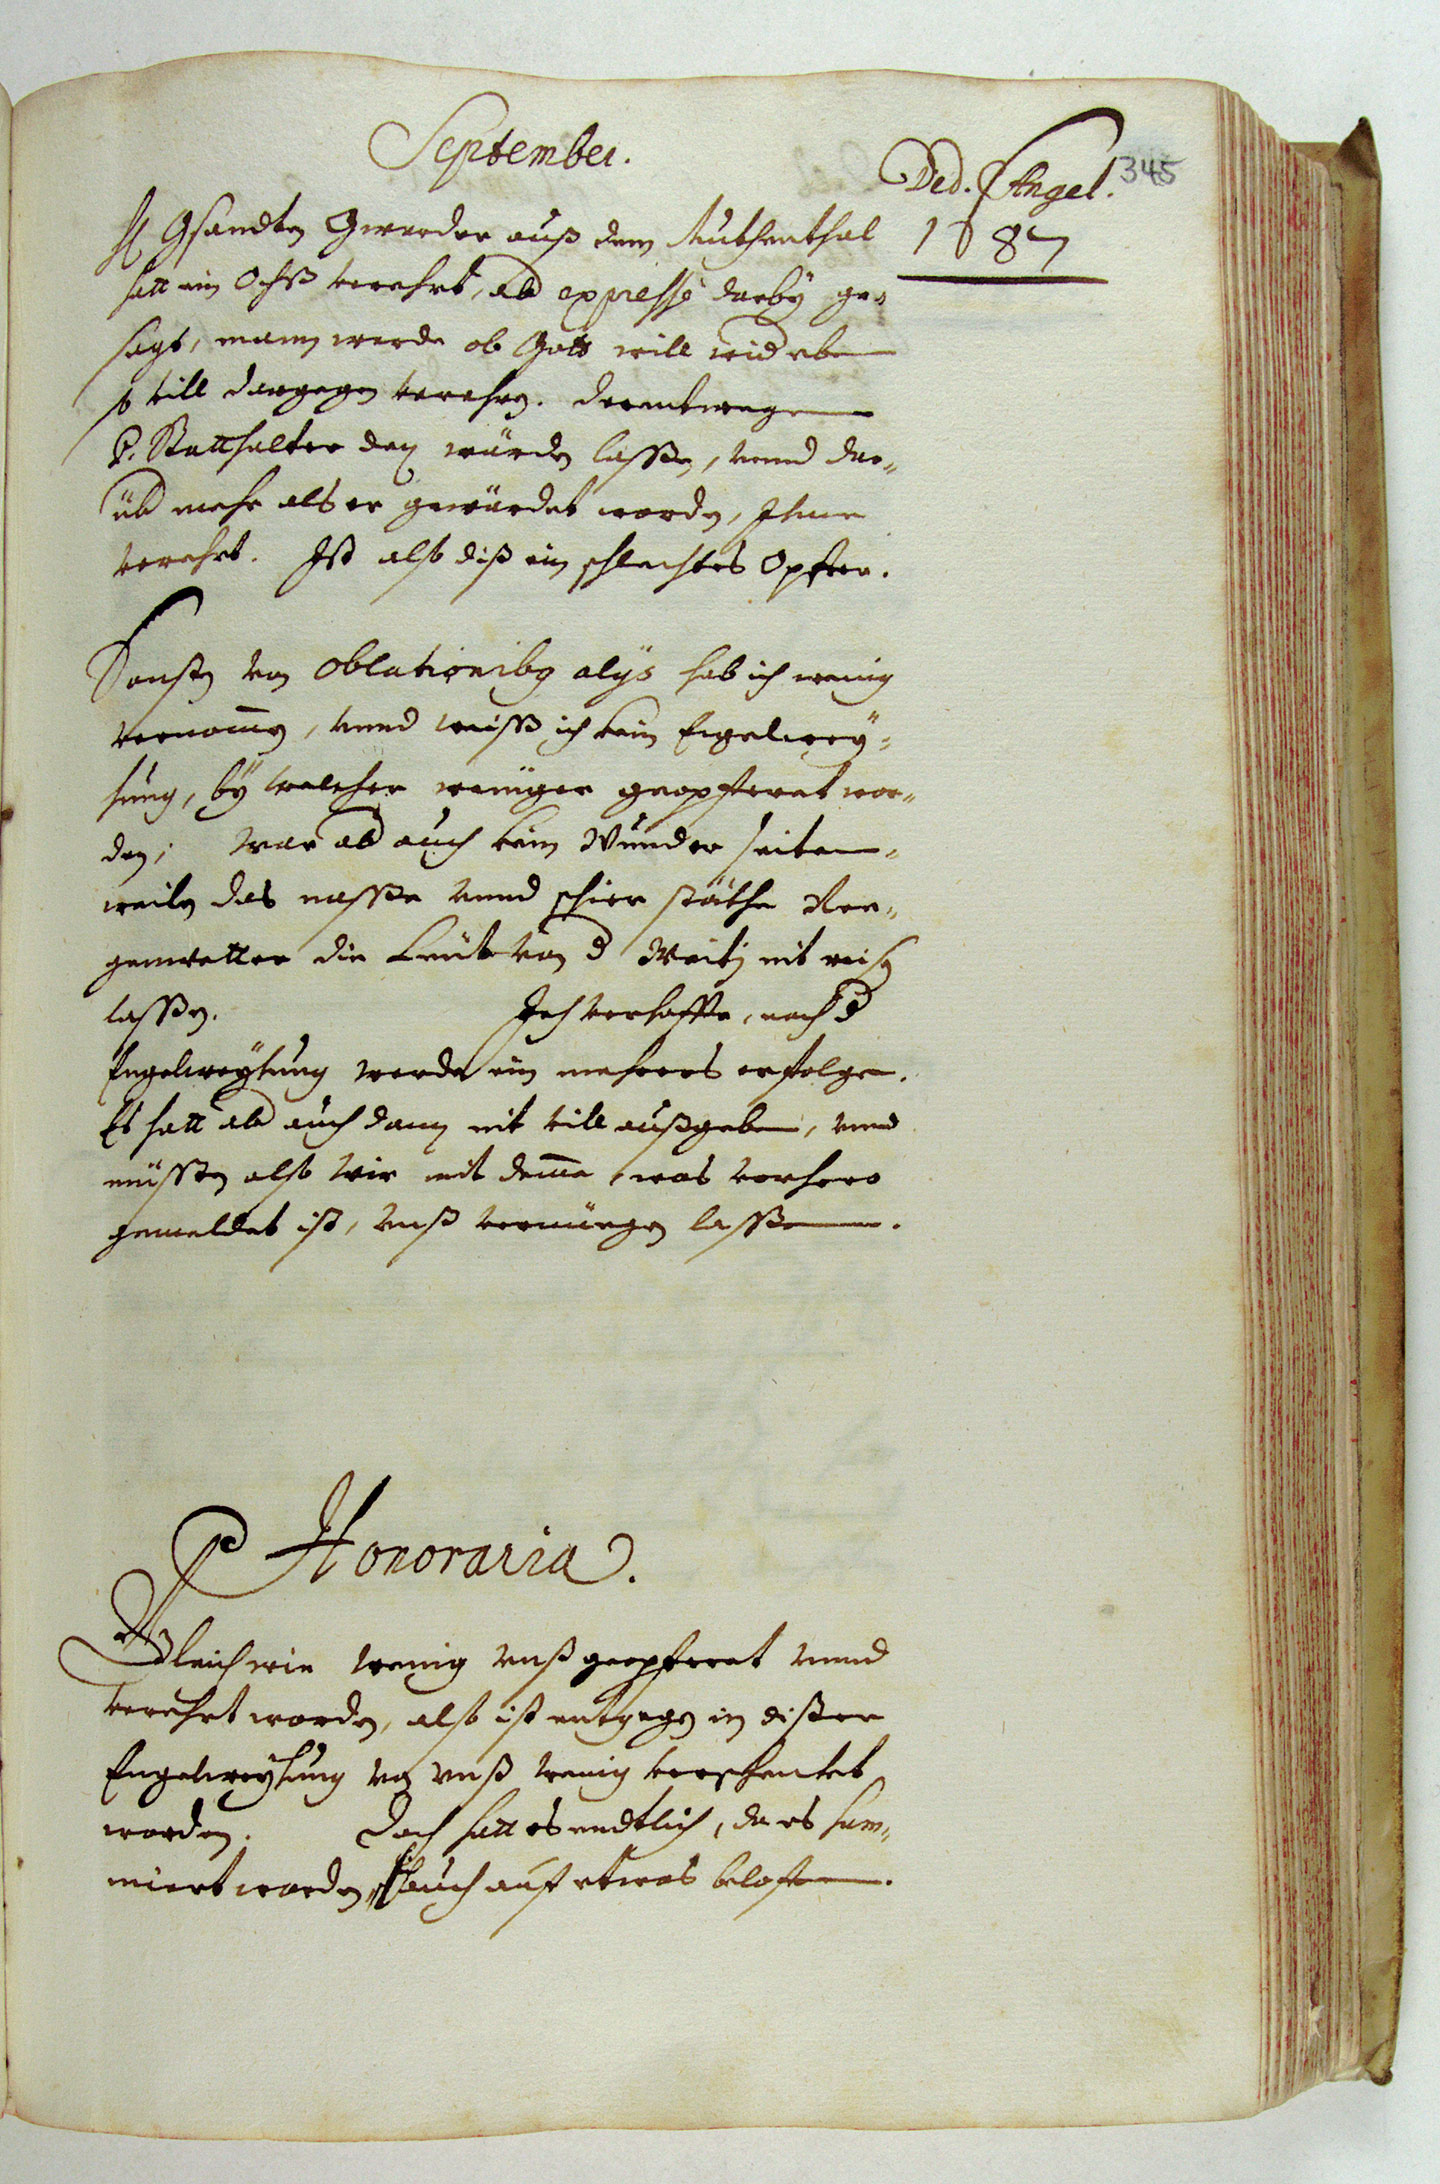 September.
Ded. Angel. 345
1687
H Gsandten Gwerder auß dem Muthenthal
hatt ein Ochß verehrt, abd expressè darby ge-
sagt, mann werde ob Gott will wid eben
so vill dargegen verehren. Derentwegen
P. Statthalter den würden lassen, vnnd dar-
übd mehr als er gewürdet worden, Ihme
verehrt. Ist also diß ein schlechtes Opffer.
Sonsten von Oblationibg alijs hab ich wenig
vernommen, vnnd weiß ich kein Engelwey-
hung, bÿ welcher weniger geopfferet wor-
den; War abd auch kein Wunder seiten-
weilen das nasse vnnd schier stäthe Re-
genwetter die Leüt von d Weitj nit reisen
lassen. Ich verhoffe, nach d
Engelweyhung werde ein mehrers erfolgen.
Es hatt abd auch dann nit vill außgeben, vnnd
müssten also wir mit deme, was vorhero
gemeldet ist, vnß vernüegen lassen.
Honoraria.
Gleich wie wenig vnß geopfferet vnnd
verehrt worden, also ist entgegen in disser
Engelweyhung von vnß wenig verschencket
worden. Doch hatt es endtlich, da es sum-
miert worden, sich auch auff etwas beloffen.